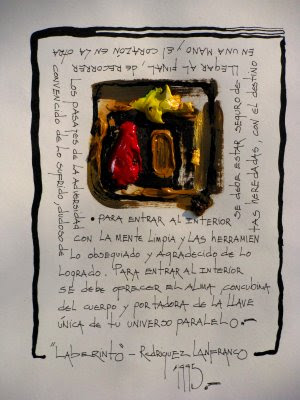 • PARA ENTRAR AL INTERIOR
SE DEBE ESTAR SEGURO DE
LLEGAR AL FINAL DE RECORRER
LOS PASAJES DE LA ADVERSIDAD
CON LA MENTE LIMPIA Y LAS HERRAMIEN
TAS HEREDADAS, CON EL DESTINO
EN UNA MANO Y EL CORAZÓN EN LA OTRA
CONVENCIDO DE LO SUFRIDO, DUDOSO DE
LO OBSEQUIADO Y AGRADECIDO DE LO
LOGRADO. PARA ENTRAR AL INTERIOR
SE DEBE OFRECER EL ALMA, CONCUBINA
DEL CUERPO Y PORTADORA DE LA LLAVE
ÚNICA DE TU UNIVERSO PARALELO.-
"LABERINTO" - RODRIGUEZ LANFRANCO
1995.-